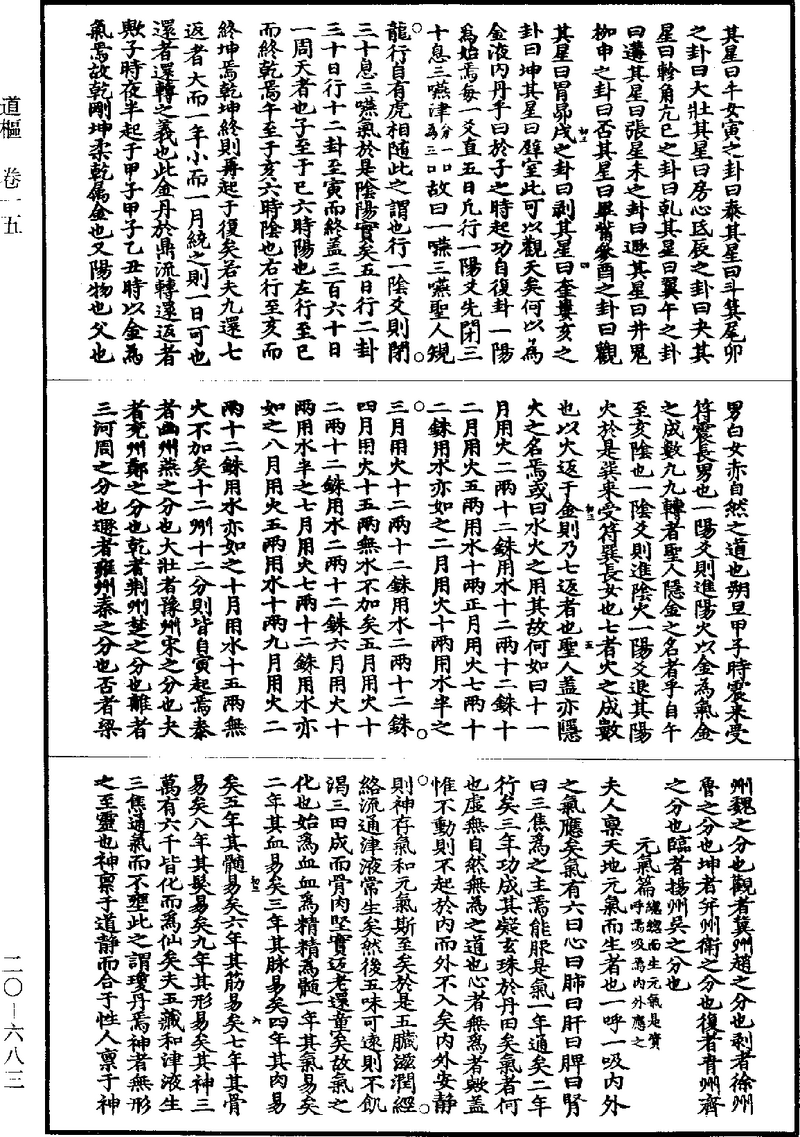 道樞 卷一五
二〇—六八三
其星曰牛女寅之卦曰泰其星曰斗箕尾卯
之卦曰大壯其星曰房心氐辰之卦曰夬其
星曰軫角亢巳之卦曰乹其星曰翼午之卦
曰遘其星曰張星未之卦曰遯其星曰井鬼
柳申之卦曰否其星曰畢觜參酉之卦曰觀
其星曰胃昴戌之卦曰剥其星曰奎婁亥之
卦曰坤其星曰壁室此可以觀天矣何以為
金液內丹乎曰於子之時起功自復卦一陽
為始焉每一爻直五日凡行一陽爻先閉三
十息三嚥津分一口為三口故曰一嚥三嚥聖人䂓
龍行自有虎相隨此之謂也行一陰爻則閉
三十息三嚥氣於是陰陽實矣五日行二卦
三十日行十二卦至寅而終蓋三百六十日
一周天者也子至于巳六時陽也左行至巳
而終乾焉午至于亥六時陰也右行至亥而
終坤焉乾坤終則再起于復矣若夫九還七
返者大而一年小而一月統之則一日可也
還者還轉之義也此金丹於鼎流轉還返者
歟子時夜半起于甲子甲子乙丑時以金為
氣焉故乾剛坤柔乾屬金也又陽物也父也
男白女赤自然之道也朔旦甲子時震来受
符震長男也一陽爻則進陽火以金為氣金
之成數九九轉者聖人隱金之名者乎自午
至亥陰也一陰爻則進陰火一陽爻退其陽
火於是巽来受符巽長女也七者火之成數
也以火返于金則乃七返者也聖人蓋亦隱
火之名焉或曰水火之用其故何如曰十一
月用火二兩十二銖用水十二兩十二銖十
二月用火五兩用水十兩正月用火七兩十
二銖用水亦如之二月用火十兩用水半之
三月用火十二兩十二銖用水二兩十二銖
四月用火十五兩無水不加矣五月用火十
二兩十二銖用水二兩十二銖六月用火十
兩用水半之七月用火七兩十二銖用水亦
如之八月用火五兩用水十兩九月用火二
兩十二銖用水亦如之十月用水十五兩無
火不加矣十二州十二分則皆自寅起焉泰
者幽州燕之分也大壯者豫州宋之分也夬
者兖州鄭之分也乾者荆州楚之分也離者
三河周之分也遯者雍州秦之分也否者梁
州魏之分也觀者冀州趙之分也剥者徐州
魯之分也坤者并州衛之分也復者青州齊
之分也臨者揚州吳之分也
元氣篇
夫人禀天地元氣而生者也一呼一吸内外
之氣應矣氣有六曰心曰肺曰肝曰脾曰腎
曰三焦為之主焉能服是氣一年通矣二年
行矣三年功成其凝玄珠於丹田矣氣者何
也虛無自然無為之道也心者無為者歟蓋
惟不動則不起於内而外不入矣内外安静
則神存氣和元氣斯至矣於是五臟滋潤經
絡流通津液常生矣然後五味可逺則不飢
渇三田成而骨肉堅實迈老還童矣故氣之
化也始為血血為精精為髓一年其氣易矣
二年其血易矣三年其脉易矣四年其肉易
矣五年其髓易矣六年其筋易矣七年其骨
易矣八年其髪易矣九年其形易矣其神三
萬有六千皆化而為仙矣夫五藏和津液生
三焦通氣而不壅此之謂瓊丹焉神者無形
之至靈也神禀于道静而合于性人禀于神